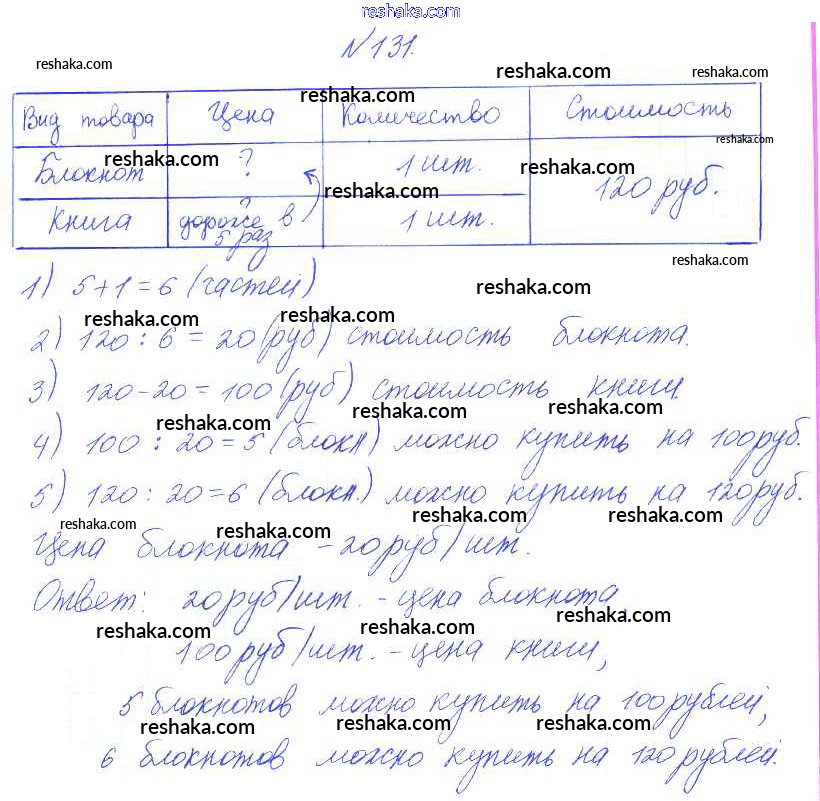 reshaka.com
№131.
reshaka.com reshaka.com reshaka.com
reshaka.com
Вид товара Цена Количество Стоимость
reshaka.com
Блокнот ? 1 шт. 120 руб.
reshaka.com reshaka.com
reshaka.com
Книга ? дороже в 5 раз 1 шт.
reshaka.com
reshaka.com
1) 5+1=6 (частей)
reshaka.com
reshaka.com reshaka.com
2) 120 : 6 = 20 (руб) стоимость блокнота.
reshaka.com
3) 120-20=100 (руб) стоимость книги.
reshaka.com reshaka.com reshaka.com
4) 100 : 20=5 (блокн) можно купить на 100 руб.
5) 120 : 20=6 (блокн.) можно купить на 120 руб.
reshaka.com reshaka.com reshaka.com reshaka.com
Цена блокнота - 20 руб/шт.
Ответ: 20 руб/шт. - цена блокнота,
reshaka.com reshaka.com
100 руб/шт. - цена книги,
5 блокнотов можно купить на 100 рублей,
reshaka.com reshaka.com reshaka.com
6 блокнотов можно купить на 120 рублей.